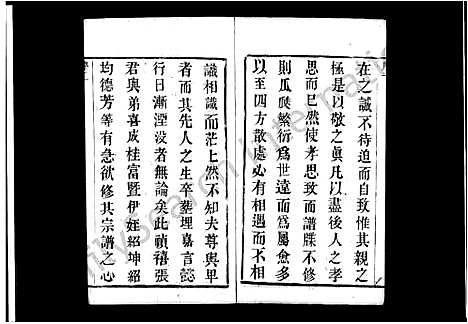 在之誠不待迫而自致惟其親之
極是以敬之眞凡以盡後人之孝
思而已然使孝思致而譜牒不修
則瓜瓞繁衍爲世遠而爲屬愈多
以至四方散處必有相遇而不相
識相識而茫上然不知夫尊與卑
者而其先人之生卒塟埋嘉言懿
行日漸湮没者無論矣此禎禧張
君與弟喜成桂富暨伊姪紹坤紹
均德芳等有急欲修其宗譜之心